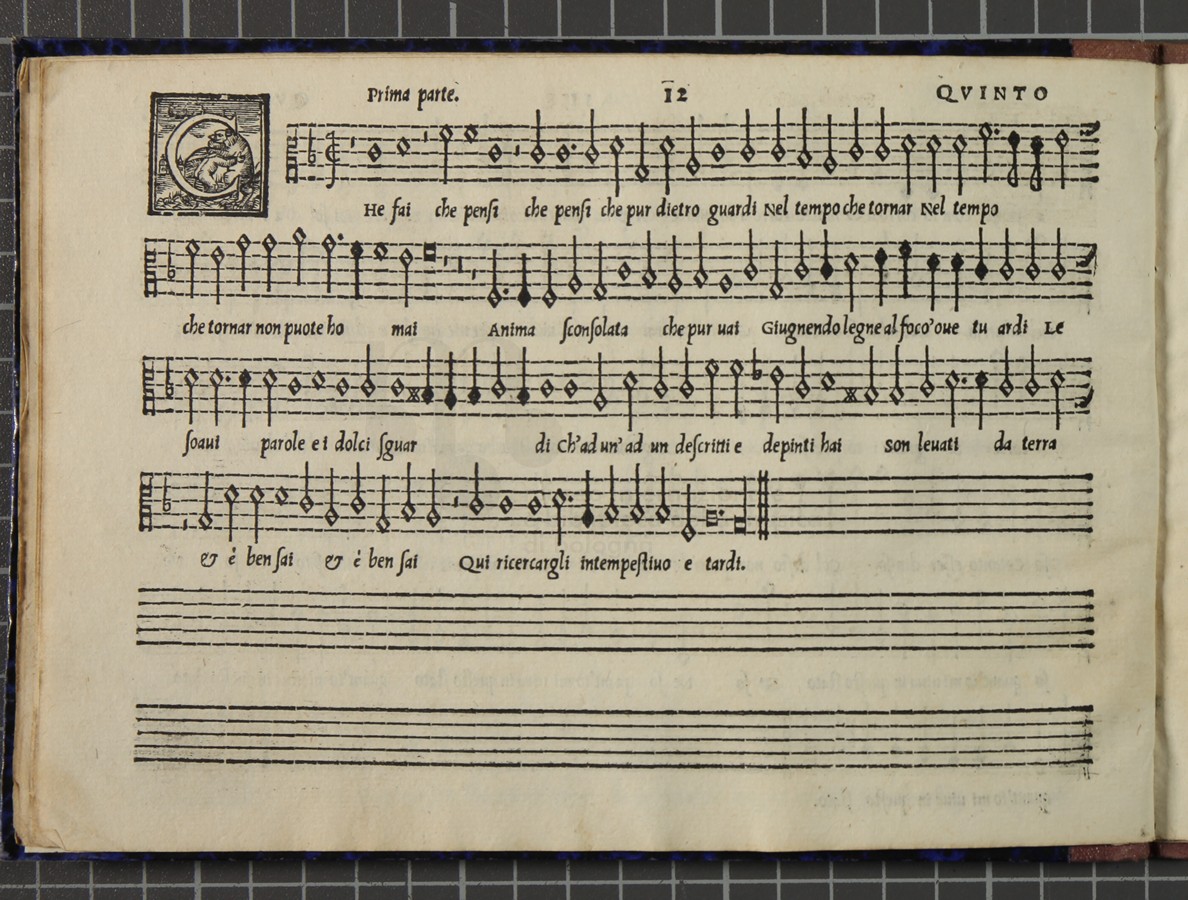 Prima parte. 12 QVINTO
C
He fai che pensi che pensi che pur dietro guardi Nel tempo che tornar Nel tempo
che tornar non puote ho mai Anima sconsolata che pur uai Giugnendo legne al foco'oue tu ardi Le
soaui parole e i dolci sguar di Ch'ad un' ad un descritti e depinti hai son leuati da terra
& è ben sai & è ben sai Qui ricercargli intempestiuo e tardi.